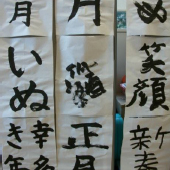 め
笑顔
新春
月
正月
月
いぬ
幸多
き年